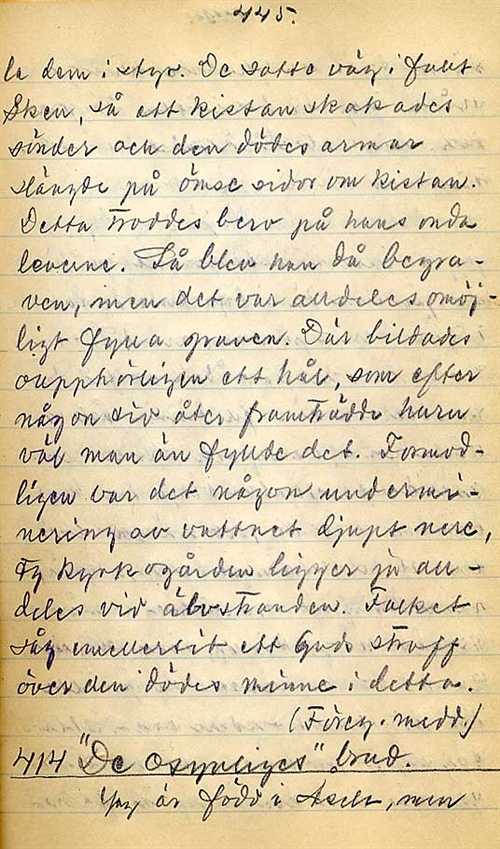 445.
la dem i styr. De satte väg i fullt
sken, så att kistan skakades
sönder och den dödes armar
slängde på ömse sidor om kistan.
Detta troddes bero på hans onda
leverne. Så blev han då begra-
ven, men det var alldeles omöj-
ligt fylla graven. Där bildades
oupphörligen ett hål, som efter
någon tid åter framträdde huru
väl man än fyllde det. Formod-
ligen var det någon undermi-
nering av vattnet djupt nere,
ty kyrkogården ligger ju all-
deles vid älvstranden. Folket
såg emellertid ett Guds straff
över den dödes minne i detta.
(Föreg. medd.)
414 "De osynliges" brud.
Jag är född i Asele, men